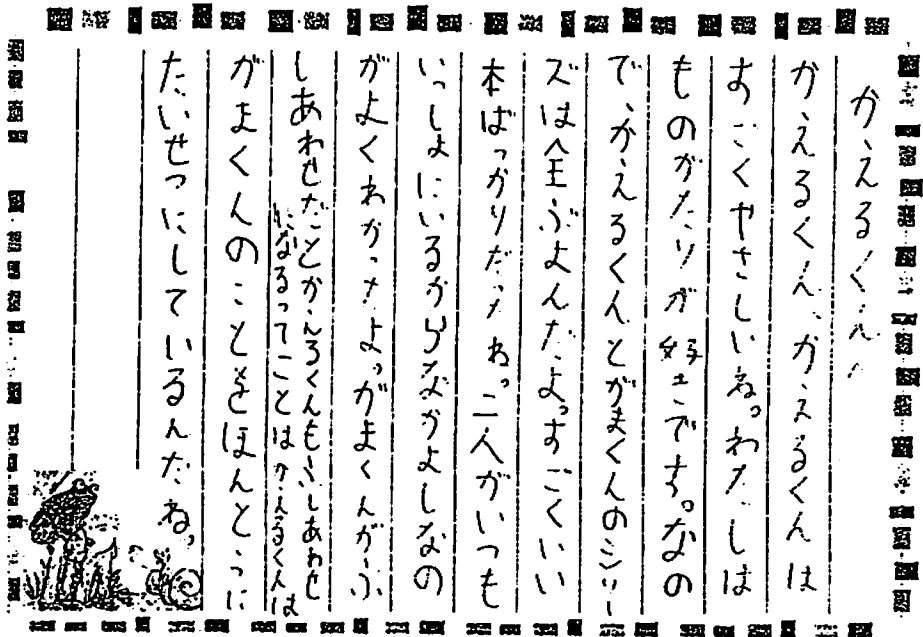 かえるくんへ
かえるくん、かえるくんは
すごくやさしいね。わたしは
ものがたりが好きです。なの
で、かえるくんとがまくんのシリー
ズは全ぶよんだよ。すごくいい
本ばっかりだったね。二人がいつも
いっしょにいるからなかよしなの
がよくわかったよ。がまくんがふ
しあわせだとかえるくんもふしあわせ
になるってことはかえるくんは
がまくんのことをほんとうに
たいせつにしているんだね。